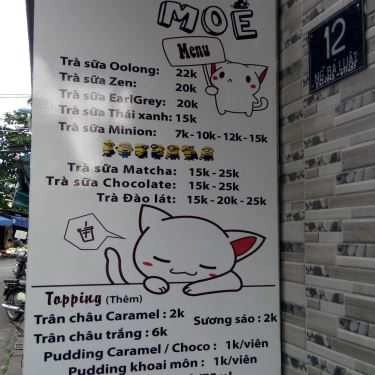 MOÉ
Menu
Trà sữa Oolong: 22k
Trà sữa Zen: 20k
Trà sữa EarlGrey: 20k
Trà sữa Thái xanh: 15k
Trà sữa Minion: 7k-10k-12k-15k
Trà sữa Matcha: 15k-25k
Trà sữa Chocolate: 15k-25k
Trà Đào lát: 15k-20k-25k
Topping (Thêm)
Trân châu Caramel : 2k
Sương sáo : 2k
Trân châu trắng : 6k
Pudding Caramel / Choco : 1k/viên
Pudding khoai môn : 1k/viên
12